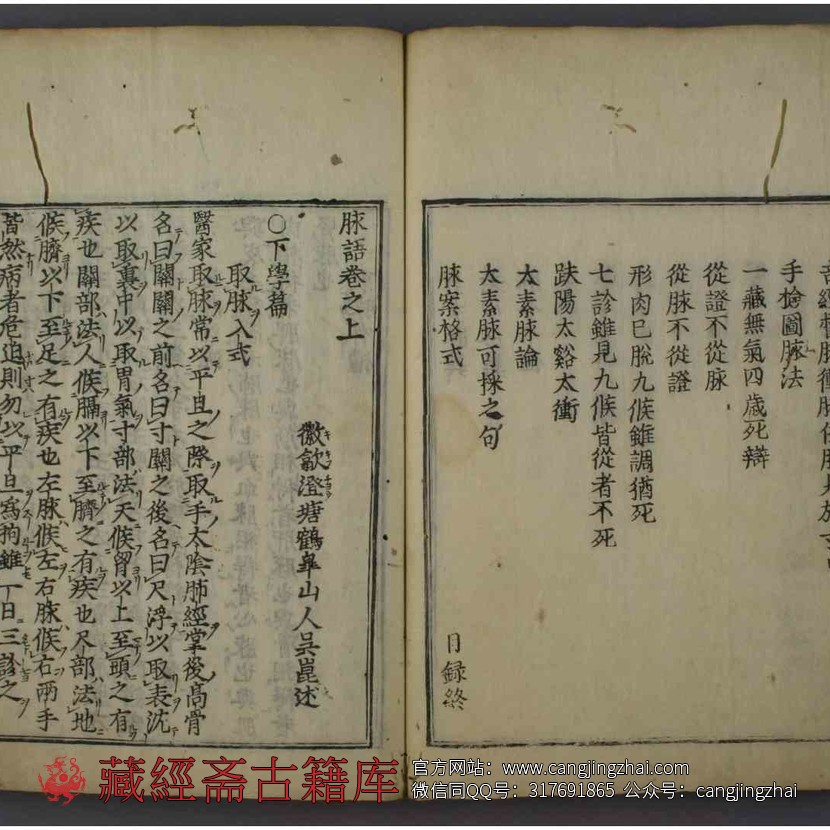 手撿圖脉法
一藏無氣四歳死辯
從證不從脉
從脉不從證
形肉已脫九候雖調猶死
七診雖見九候皆從者不死
趺陽太谿太衝
太素脉論
太素脉可採之句
脉案格式
目録終
脉語卷之上
徽歙澄塘鶴皐山人吳崑述
〇下學篇
取脉入式
醫家取脉常以平旦之際取手太陰肺經掌後高骨
名曰關關之前名曰寸關之後名曰尺浮以取表沈
以取裏中以取胃氣寸部法天候胷以上至頭之有
疾也關部法人候膈以下至臍之有疾也尺部法地
候臍以下至足之有疾也左脉候左右脉候右兩手
皆然病者危迫則勿以平旦爲拘雖一日三診之
藏經斋古籍库
官方网站：www.cangjingzhai.com
微信同QQ号：317691865 公众号：cangjingzhai